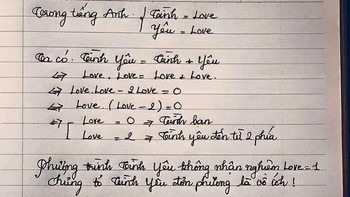 Trong tiếng Anh. { Tình = Love
Yêu = Love
Ta có. Tình Yêu = Tình + Yêu
⇔ Love. Love = Love + Love.
⇔ Love.Love - 2Love = 0
⇔ Love. (Love - 2) = 0
⇔ [ Love = 0 ⇒ Tình bạn
Love = 2 ⇒ Tình yêu đến từ 2 phía
Phương trình Tình Yêu không nhận nghiệm Love = 1
chứng tỏ Tình Yêu đơn phương là vô ích!